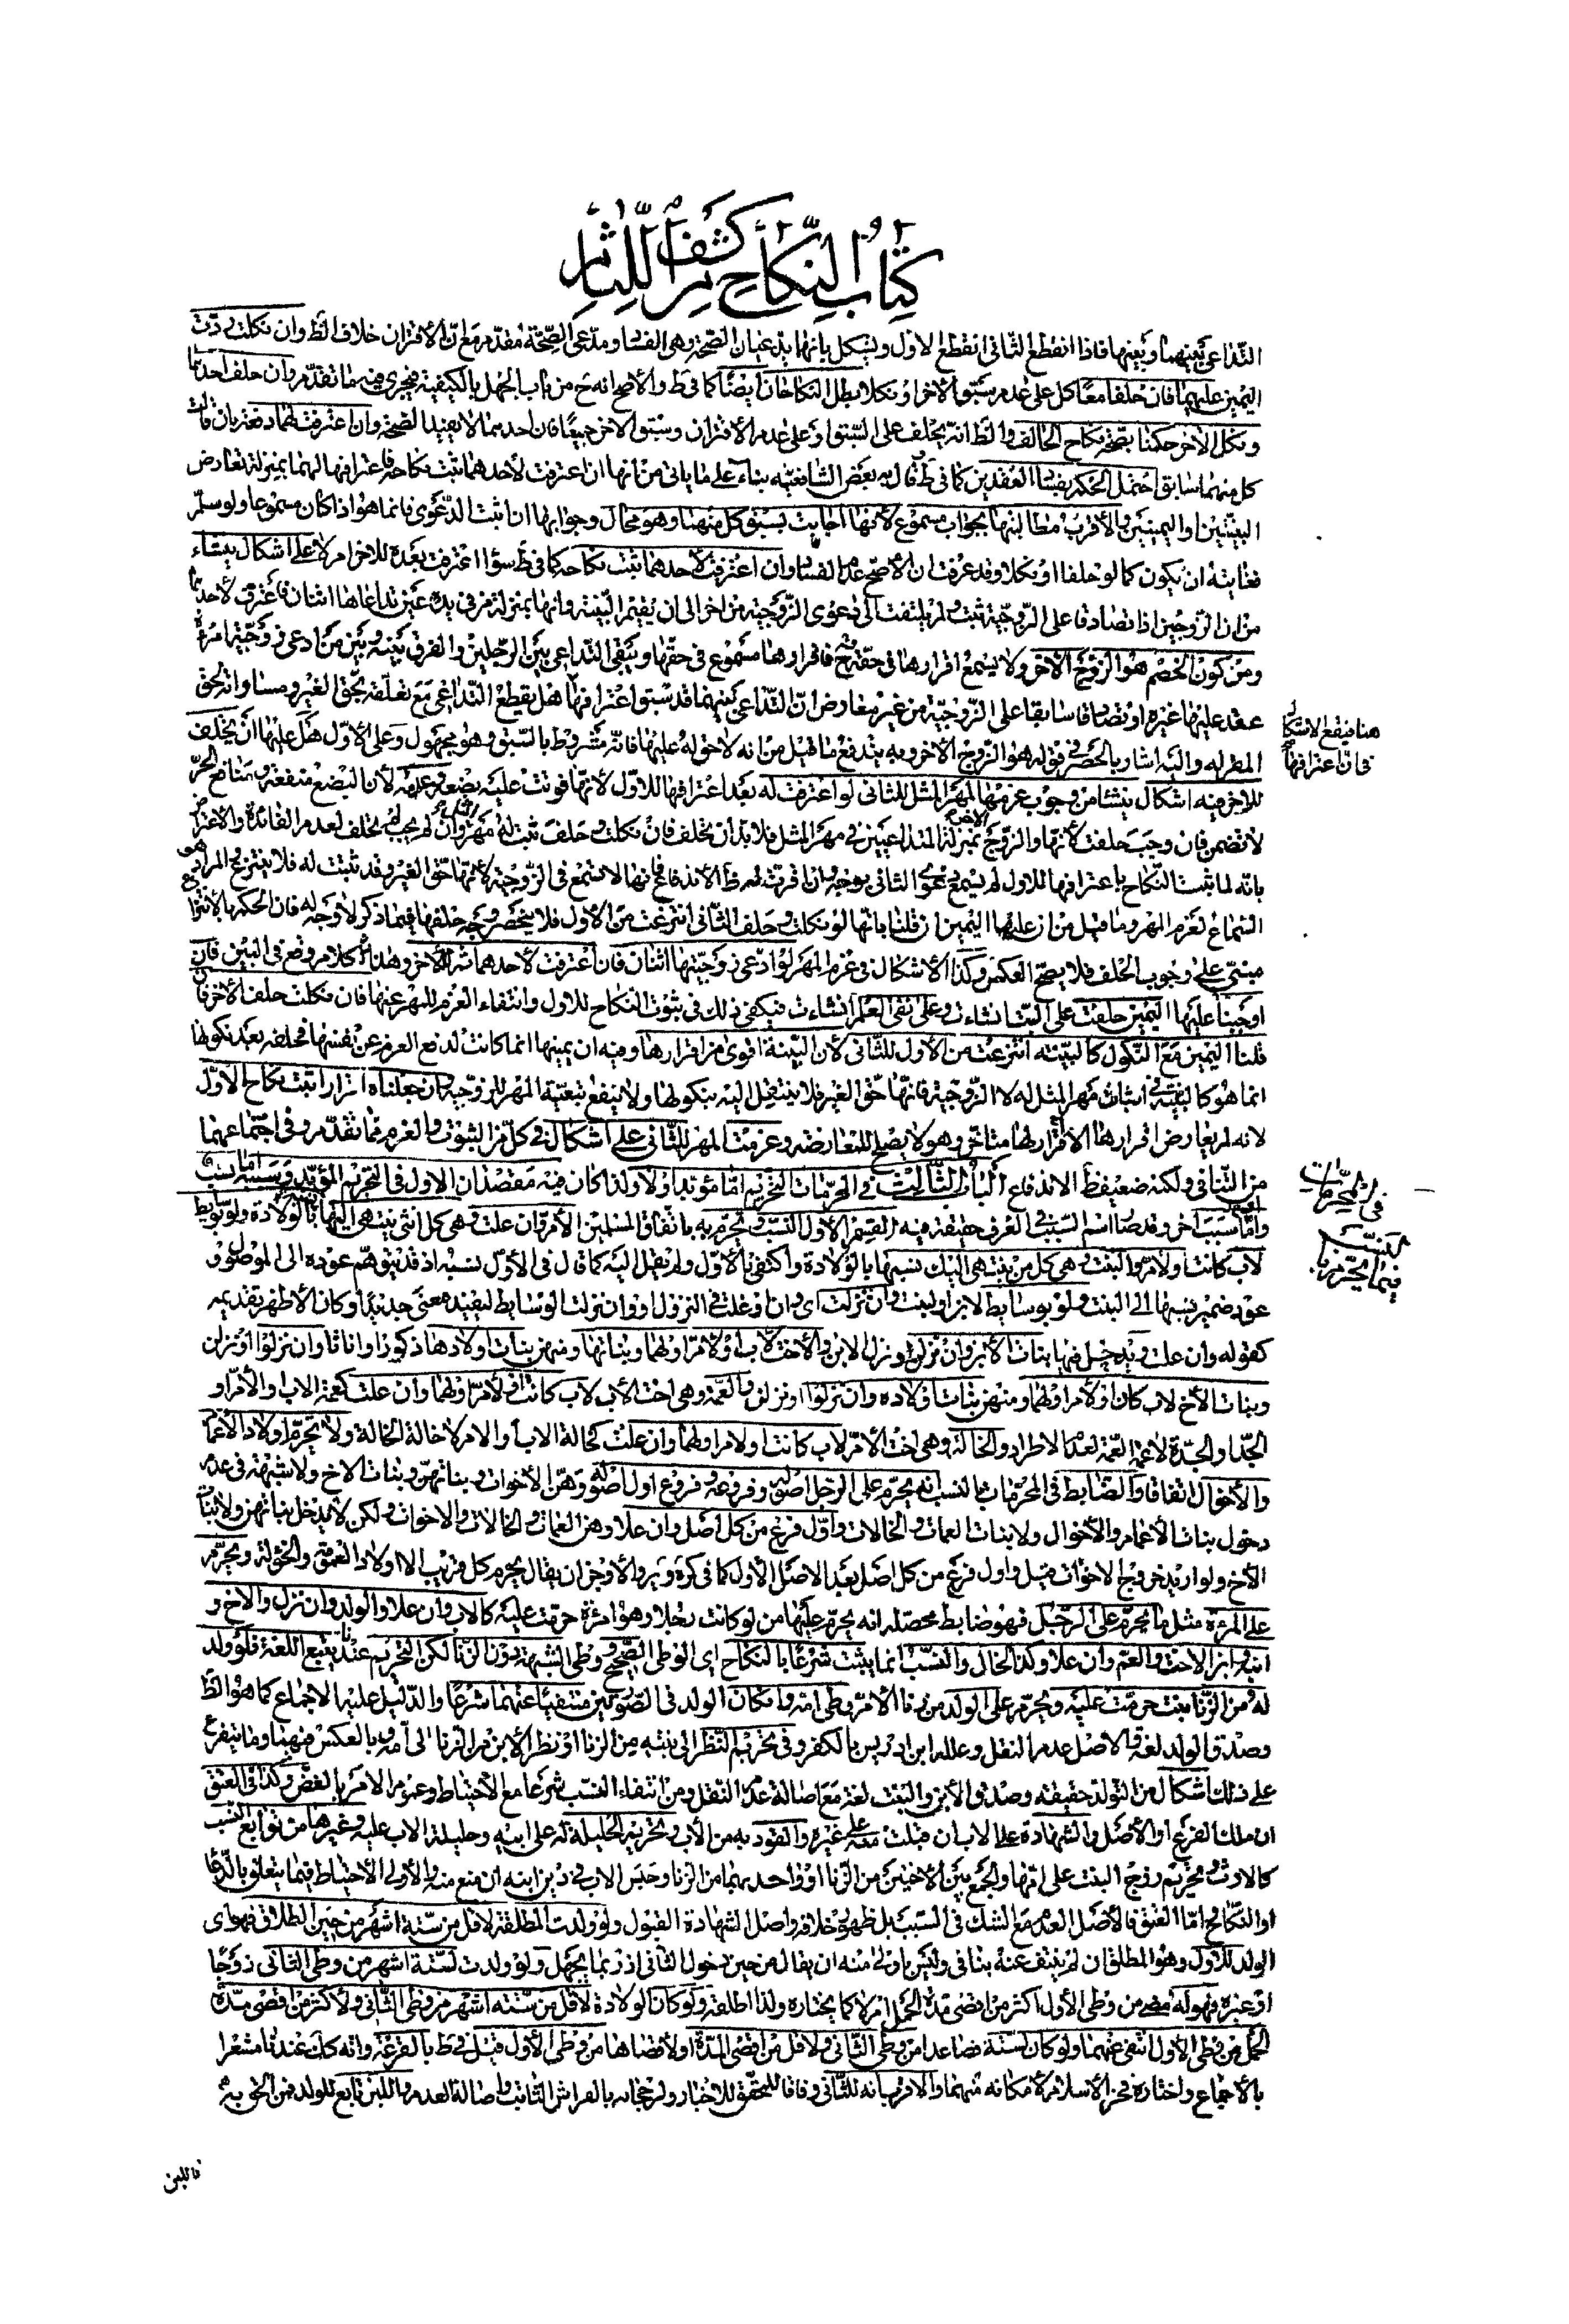 كتاب النكاح من كشف اللثام
التداعي بينهما وبينها فاذا انقطع الثاني انقطع الاول ويشكل بانهما يدعيان الصحة وهي الفساد ومدعي الصحة مقدم مع ان الاقتران خلاف الظ وان نكلت ردت
اليمين عليهما فان حلفا معا كل على عدم سبق الاخر او نكلا بطل النكاحان ايضا كما في ط والاصح انه ح من باب الجهل بالكيفية فيجري فيه ما تقدم وان حلف احدهما
ونكل الاخر حكمنا بصحة نكاح الحالف والظ انه يحلف على السبق او على عدم الاقتران وسبق الاخر جميعا فان احدهما لا يفيد الصحة وان اعترفت لهما دفعة بان قالت
كل منهما سابق احتمل الحكم بفساد العقدين كما في ط قال به بعض الشافعية بناء على ما ياتي من انها ان اعترفت لاحدهما ثبت نكاحه فاعترافها لهما بمنزلة تعارض
البينتين او اليمينين والاقرب مطالبتها بجواب مسموع لانها اجابت بسبق كل منهما وهو محال وجوابها ان اثبت الدعوى فانما هو اذا كان مسموعا ولو سلم
فغايته ان يكون كما لو حلفا او نكلا وقد عرفت ان الاصح عدم الفساد وان اعترفت لاحدهما ثبت نكاحه كما في ط سواء اعترفت بعده للاخر ام لا على اشكال ينشاء
من ان الزوجين اذا تصادقا على الزوجية ثبت ولم يلتفت الى دعوى الزوجية من اخر الى ان يقيم البينة وانها بمنزلة من في يده عين تداعاها اثنان فاعترف لاحدهما
ومن كون الخصم هو الزوج الاخر ولا يسمع اقرارها في حقه وح فاقرارها مسموع في حقها ويبقى التداعي بين الرجلين والفرق بينه وبين من ادعى زوجية امرأة
عقد عليها غيره او تصادقا سابقا على الزوجية من غير معارض ان التداعي بينهما قد سبق اعترافها هل يقطع التداعي مع تعلقه بحق الغير ومساواته لحق
المقر له واليه اشار بالحصر في قوله هو الزوج الاخر وبه يندفع ما قيل من انه لا حق له عليها فانه مشروط بالسبق وهو مجهول وعلى الاول هل عليها ان يحلف
للاخر فيه اشكال ينشا من وجوب غرمها المهر المثل للثاني لو اعترفت له بعد اعترافها للاول لانها فوتت عليه بضعه وعدمه لان البضع منفعة ومنافع الحر
لا تضمن فان وجب حلفت لانها والزوج الاخر بمنزلة المتداعيين في مهر المثل فلا بد ان تحلف فان نكلت وحلف ثبت له مهر المثل وان لم يجب لم تحلف لعدم الفائدة والاعتراض
بانه لما ثبت النكاح باعترافها للاول لم يسمع دعوى الثاني بوجه وان اقرت له ظ الاندفاع فانها لا تسمع في الزوجية لانها حق الغير وقد تثبت له فلا ينتزع المراد هو
السماع لغرم المهر وما قيل من ان عليها اليمين ان قلنا بانها لو نكلت وحلف الثاني انتزعت من الاول فلا ينحصر وجه حلفها فيما ذكر لا وجه له فان الحكم بالانتزاع
مبني على وجوب الحلف فلا يصح العكس وكذا الاشكال في غرم المهر لو ادعى زوجيتها اثنان فاعترفت لاحدهما ثم للاخر وهذا كلام وقع في البين فان
اوجبنا عليها اليمين حلفت على البت ان شاءت وعلى نفي العلم ان شاءت فيكفي ذلك في ثبوت النكاح للاول وانتفاء الغرم للمهر عنها فان نكلت حلف الاخر فان
قلنا اليمين مع النكول كالبينة انتزعت من الاول للثاني لان البينة اقوى من اقرارها وفيه ان يمينها انما كانت لدفع الغرم عن نفسها فحلفه بعد نكولها
انما هو كالبينة في اثبات مهر المثل له لا الزوجية فانها حق الغير فلا ينتقل اليه بنكولها ولا ينفع تبعية المهر للزوجية وان جعلناه اقرارا ثبت نكاح الاول
لانه لم يعارض اقرارها الا اقرار لها متاخر وهو لا يصلح للمعارضة وغرمت المهر للثاني على اشكال في كل من الثبوت والغرم فما تقدم وفي اجتماعهما
من التنافي ولكنه ضعيف ظ الاندفاع الباب الثالث في المحرمات التحريم اما مؤبد او لا ولذا كان فيه مقصدان الاول في التحريم المؤبد وسببه اما نسب
واما سبب اخر وقد صار اسم السبب في العرف حقيقة فيه القسم الاول النسب وتحرم به باتفاق المسلمين الام وان علت وهي كل انثى ينتهي اليها بالولادة ولو بوسايط
لاب كانت او لام والبنت وهي كل من ينتهي اليك نسبها بالولادة واكتفى بالاول ولم يقل اليه كما قال في الاول نسبه اذ قد يتوهم عوده الى الموصول او
عود ضمير نسبها الى البنت ولو بوسايط لابن او لبنت وان نزلت اي وان اوغلت في النزول او وان نزلت الوسايط ليفيد معنى جديدا وكان الاظهر تقديمه
كقوله وان علت ويدخل فيها بنات الابن وان نزلن ونزل الابن والاخت لاب او لام او لهما وبناتها ومنهن بنات اولادها ذكورا واناثا وان نزلوا او نزلن
وبنات الاخ لاب كان او لام او لهما ومنهن بنات اولاده وان نزلوا او نزلن والعمة وهي اخت الاب لاب كانت او لام او لهما وان علت كعمة الاب والام او
الجد او الجدة لا عمة العمة لعدم الاطراد والخالة وهي اخت الام لاب كانت او لام او لهما وان علت كخالة الاب او الام لا خالة الخالة ولا يحرم اولاد الاعمام
والاخوال اتفاقا والضابط في المحرمات بالنسب انه يحرم على الرجل اصوله وفروعه وفروع اول اصوله وهن الاخوات وبناتهن وبنات الاخ ولا شبهة في عدم
دخول بنات الاعمام والاخوال ولا بنات العمات والخالات واول فرع من كل اصل وان علا وهن العمات والخالات والاخوات ولكن لا يدخل بناتهن ولا بنات
الاخ ولو اريد خروج الاخوات قيل واول فرع من كل اصل بعد الاصل الاول كما في كره وير والاوجز ان يقال يحرم كل قريب الا اولاد العمومة والخؤلة ويحرم
على المرءة مثل ما يحرم على الرجل فهو ضابط محصله انه يحرم عليها من لو كانت رجلا وهو امرءة حرمت عليه كالاب وان علا والولد وان نزل والاخ و
ابنه وابن الاخت والعم وان علا وكذا الخال والنسب انما يثبت شرعا بالنكاح اي الوطي الصحيح ووطي الشبهة دون الزنا لكن التحريم عندنا يتبع اللغة فلو ولد
له من الزنا بنت حرمت عليه ويحرم على الولد من زنا الام وطي امه وان كان الولد في الصورتين منتفيا عنهما شرعا والدليل عليه الاجماع كما هو الظ
وصدق الولد لغة والاصل عدم النقل وعلله ابن ادريس بالكفر وفي تحريم النظر الى بنته من الزنا او نظر الابن من الزنا الى امه وبالعكس فيهما وما يتفرع
على ذلك اشكال من التولد حقيقة وصدق الابن والبنت لغة مع اصالة عدم النقل ومن انتفاء النسب شرعا مع الاحتياط وعموم الامر بالغض وكذا في العتق
ان ملك الفرع او الاصل والشهادة على الاب ان قبلت منه على غيره والقود به من الاب وتحريم الحليلة له على ابنه وحليلة الاب عليه وغيرها من توابع النسب
كالارث وتحريم زوج البنت على امها والجمع بين الاختين من الزنا او واحد بهما من الزنا وحبس الاب في دين ابنه ان منع منه والاولى الاحتياط فيما يتعلق بالدماء
او النكاح اما العتق فالاصل العدم مع الشك في السبب بل ظهور خلافه واصل الشهادة القبول ولو ولدت المطلقة لاقل من ستة اشهر من حين الطلاق فهو اي
الولد للاول وهو المطلق ان لم ينتف عنه بنافي وليس باولى منه ان يقال من حين دخول الثاني اذ ربما يجهل ولو ولدت لستة اشهر من وطي الثاني زوجا
او غيره فهو له من وطي الاول اكثر من اقصى مدة الحمل ام لا كما يختاره ولذا اطلقه ولو كان الولادة لاقل من ستة اشهر من وطي الثاني ولاكثر من اقصى مدة
الحمل من وطي الاول انتفى عنهما ولو كان لستة فصاعدا من وطي الثاني ولاقل من اقصى المدة او لاقصاها من وطي الاول قيل في ط بالقرعة وانه كك عندنا مشعرا
بالاجماع واختاره فخر الاسلام لامكانه منهما والاقرب انه للثاني وفاقا للمحقق للاخبار ولرجحانه بالفراش الثابت واصالة العدم واللبن تابع للولد فمن الحق به
هنا فيقع الاشكال
في ان اعترافها
في المحرمات
النسب
فيما يحرم من
فاللبن